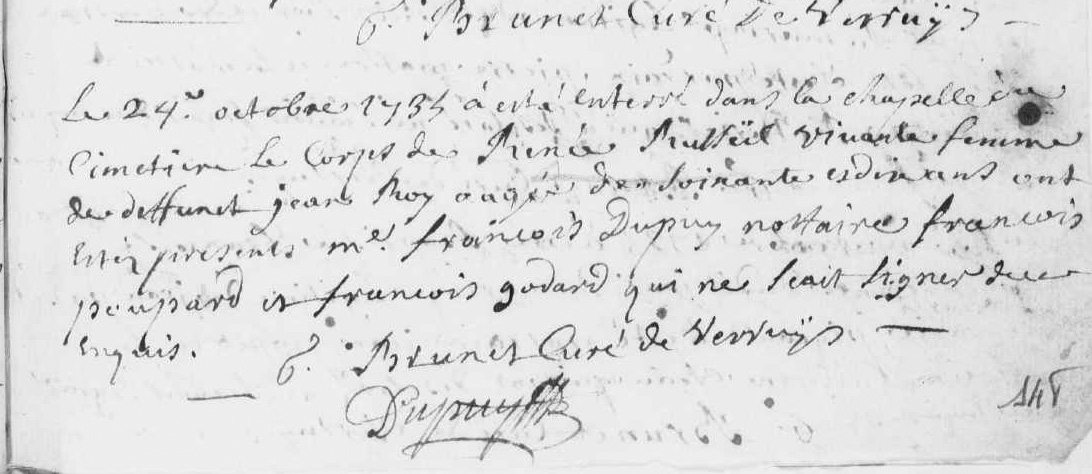 G. Brunet Curé De Verruÿs
Le 24e. octobre 1735 á esté Enterré dans la chapelle du
Cimetiere Le Corps de Renée Russeil vivante femme
de deffunct jean Roy ageé de soixante et dix ans ont
Estez presents me. françois Dupuy nottaire françois
poupard et francois godard qui ne scait signer de ce
Enquis. G. Brunet Curé de Verruÿs
Dupuy
148